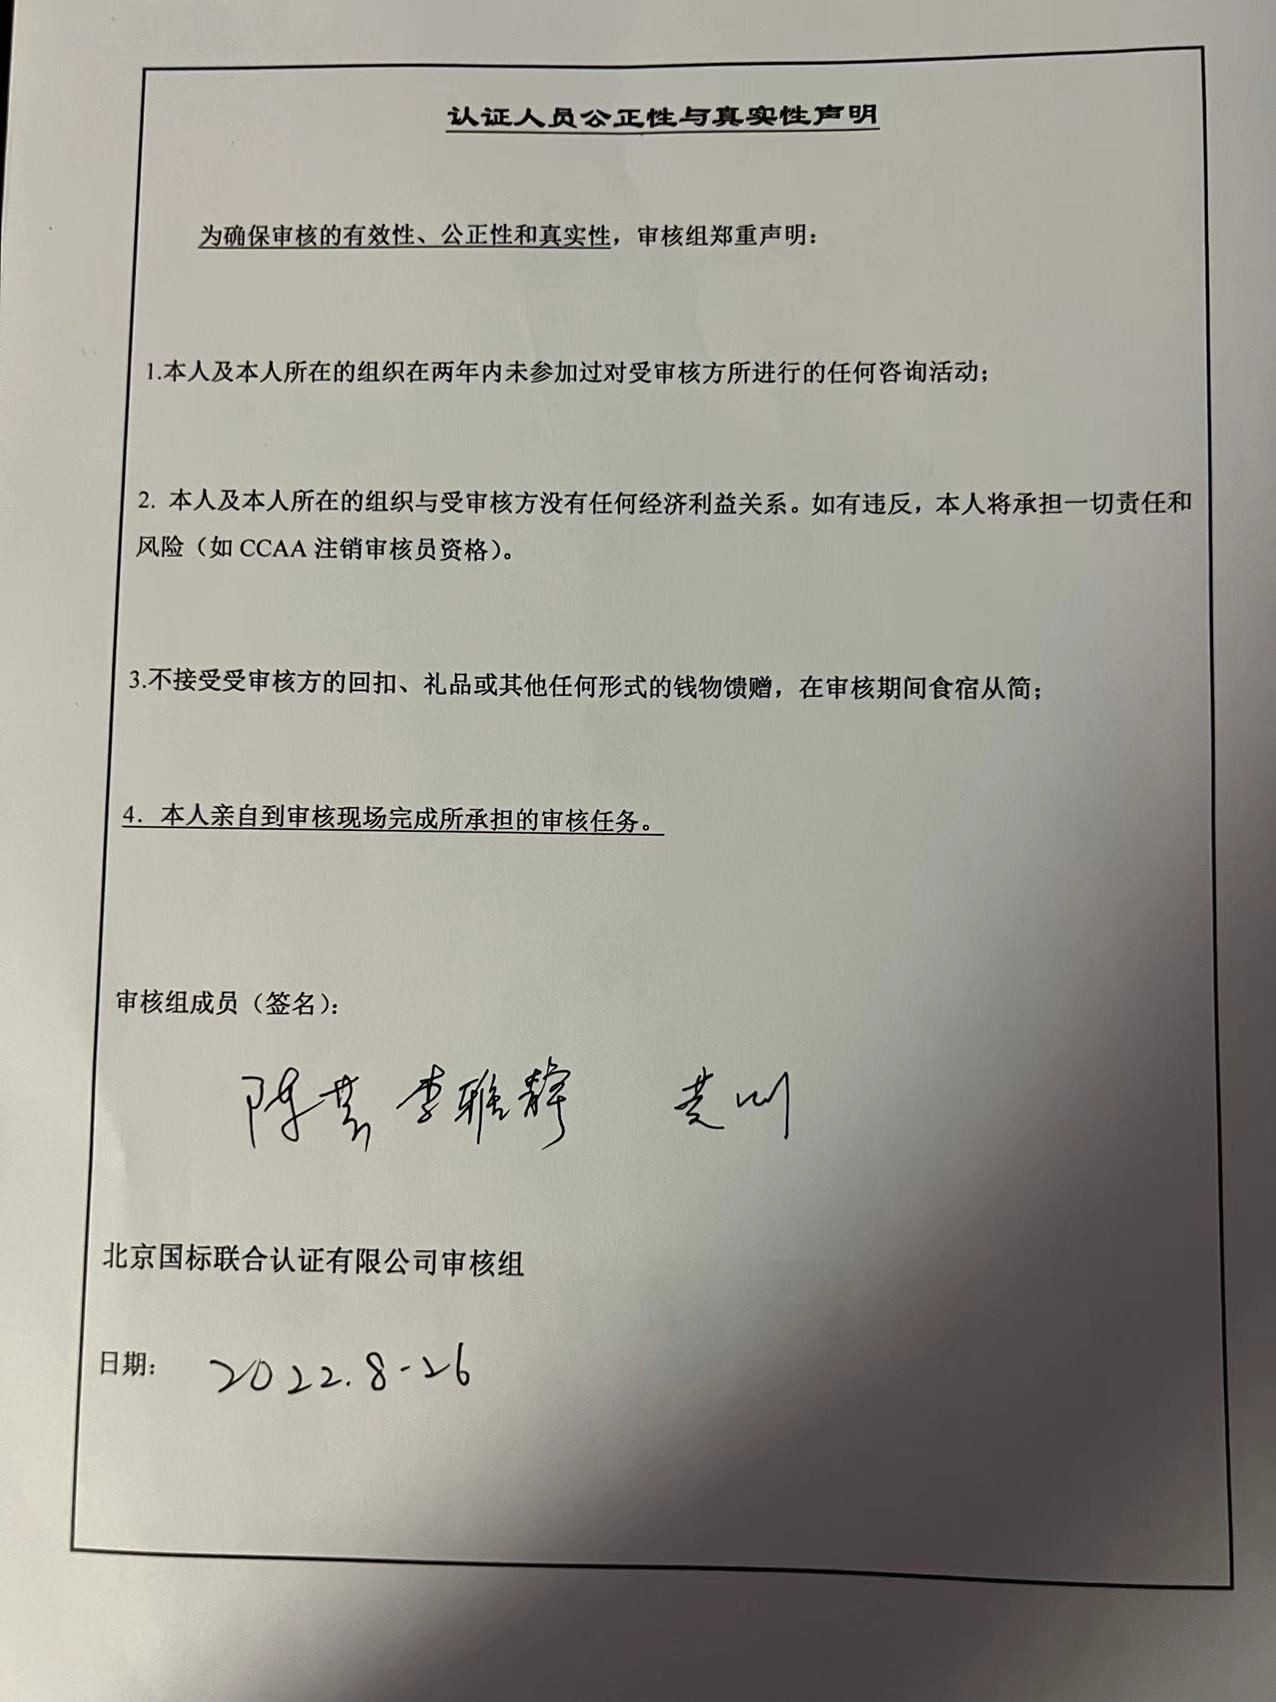 认证人员公正性与真实性声明
为确保审核的有效性、公正性和真实性，审核组郑重声明：
1.本人及本人所在的组织在两年内未参加过对受审核方所进行的任何咨询活动；
2. 本人及本人所在的组织与受审核方没有任何经济利益关系。如有违反，本人将承担一切责任和
风险（如 CCAA 注销审核员资格）。
3.不接受受审核方的回扣、礼品或其他任何形式的钱物馈赠，在审核期间食宿从简；
4. 本人亲自到审核现场完成所承担的审核任务。
审核组成员（签名）：
李雅静
北京国标联合认证有限公司审核组
日期： 2022.8-26